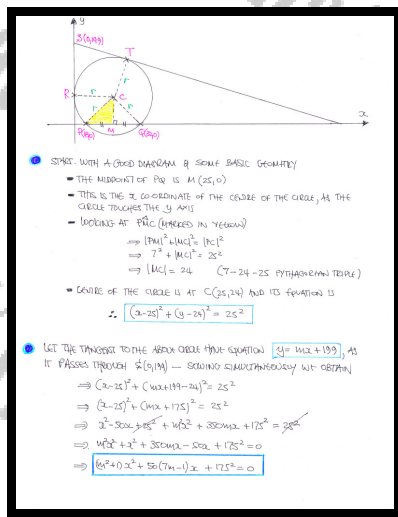 y
S(0,199)
T
r
R
r
C
r
r
x
P(18,0)
M
Q(32,0)
START WITH A GOOD DIAGRAM & SOME BASIC GEOMETRY
• THE MIDPOINT OF PQ IS M(25,0)
• THIS IS THE x CO-ORDINATE OF THE CENTRE OF THE CIRCLE, AS THE
CIRCLE TOUCHES THE y AXIS
• LOOKING AT PMC (MARKED IN YELLOW)
⇒ |PM|² + |MC|² = |PC|²
⇒ 7² + |MC|² = 25²
⇒ |MC| = 24 (7-24-25 PYTHAGOREAN TRIPLE)
• CENTRE OF THE CIRCLE IS AT C(25,24) AND ITS EQUATION IS
∴ (x-25)² + (y-24)² = 25²
LET THE TANGENT TO THE ABOVE CIRCLE HAVE EQUATION y = mx + 199, AS
IT PASSES THROUGH S(0,199) — SOLVING SIMULTANEOUSLY WE OBTAIN
⇒ (x-25)² + (mx+199-24)² = 25²
⇒ (x-25)² + (mx+175)² = 25²
⇒ x² - 50x + 25² + m²x² + 350mx + 175² = 25²
⇒ m²x² + x² + 350mx - 50x + 175² = 0
⇒ (m²+1)x² + 50(7m-1)x + 175² = 0